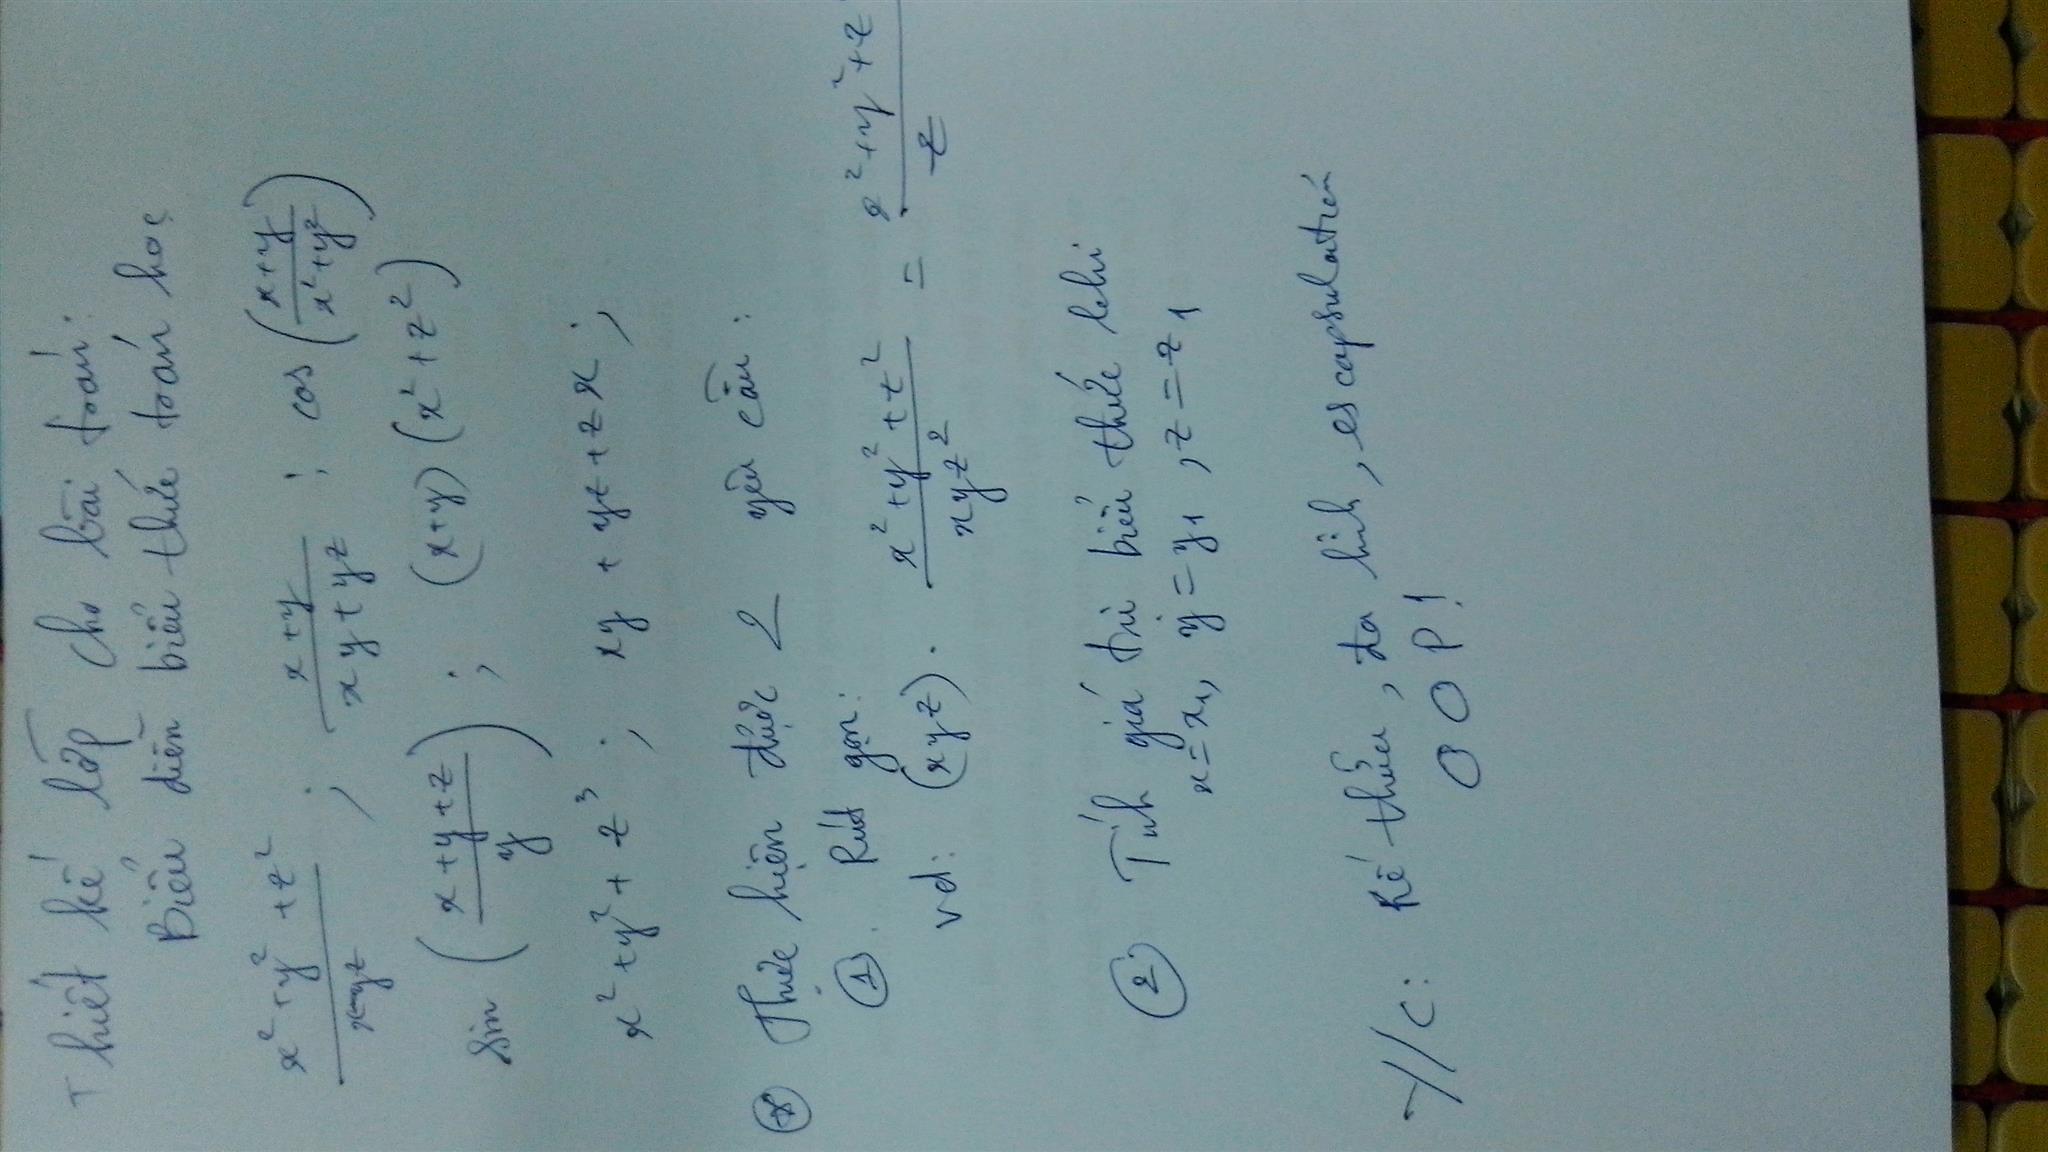 Thiết kế lớp cho bài toán:
Biểu diễn biểu thức toán học
(x² + y² + z²)/(xyz) ; (x + y)/(xy + yz) ; cos((x+y)/(x²+y²))
sin((x + y + z)/y) ; (x+y)(x² + z²)
x² + y² + z³ ; xy + yz + zx ;
⊛ Thực hiện được 2 yêu cầu :
① . Rút gọn :
vd: (xyz) . (x² + y² + z²)/(xyz²) = (x² + y² + z²)/z
② Tính giá trị biểu thức khi
x = x₁, y = y₁ , z = z₁
Y/C : Kế thừa, đa hình, escapsulation
OOP!